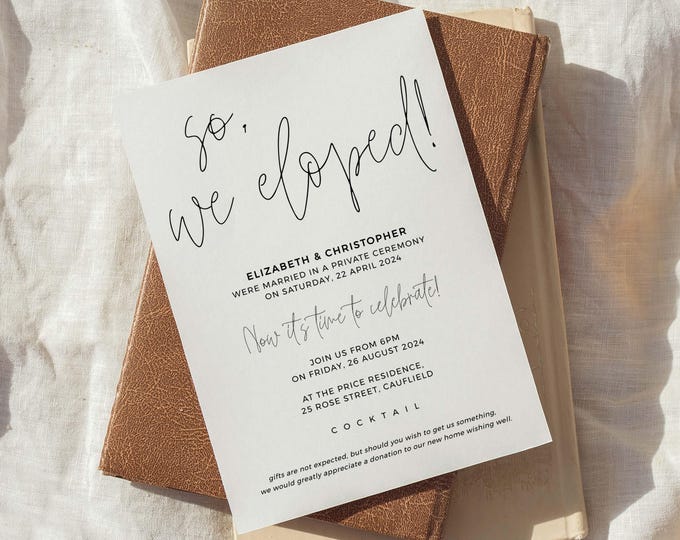 so,
we eloped!
ELIZABETH & CHRISTOPHER
WERE MARRIED IN A PRIVATE CEREMONY
ON SATURDAY, 22 APRIL 2024
Now it's time to celebrate!
JOIN US FROM 6PM
ON FRIDAY, 26 AUGUST 2024
AT THE PRICE RESIDENCE,
25 ROSE STREET, CAUFLIELD
COCKTAIL
gifts are not expected, but should you wish to get us something,
we would greatly appreciate a donation to our new home wishing well.